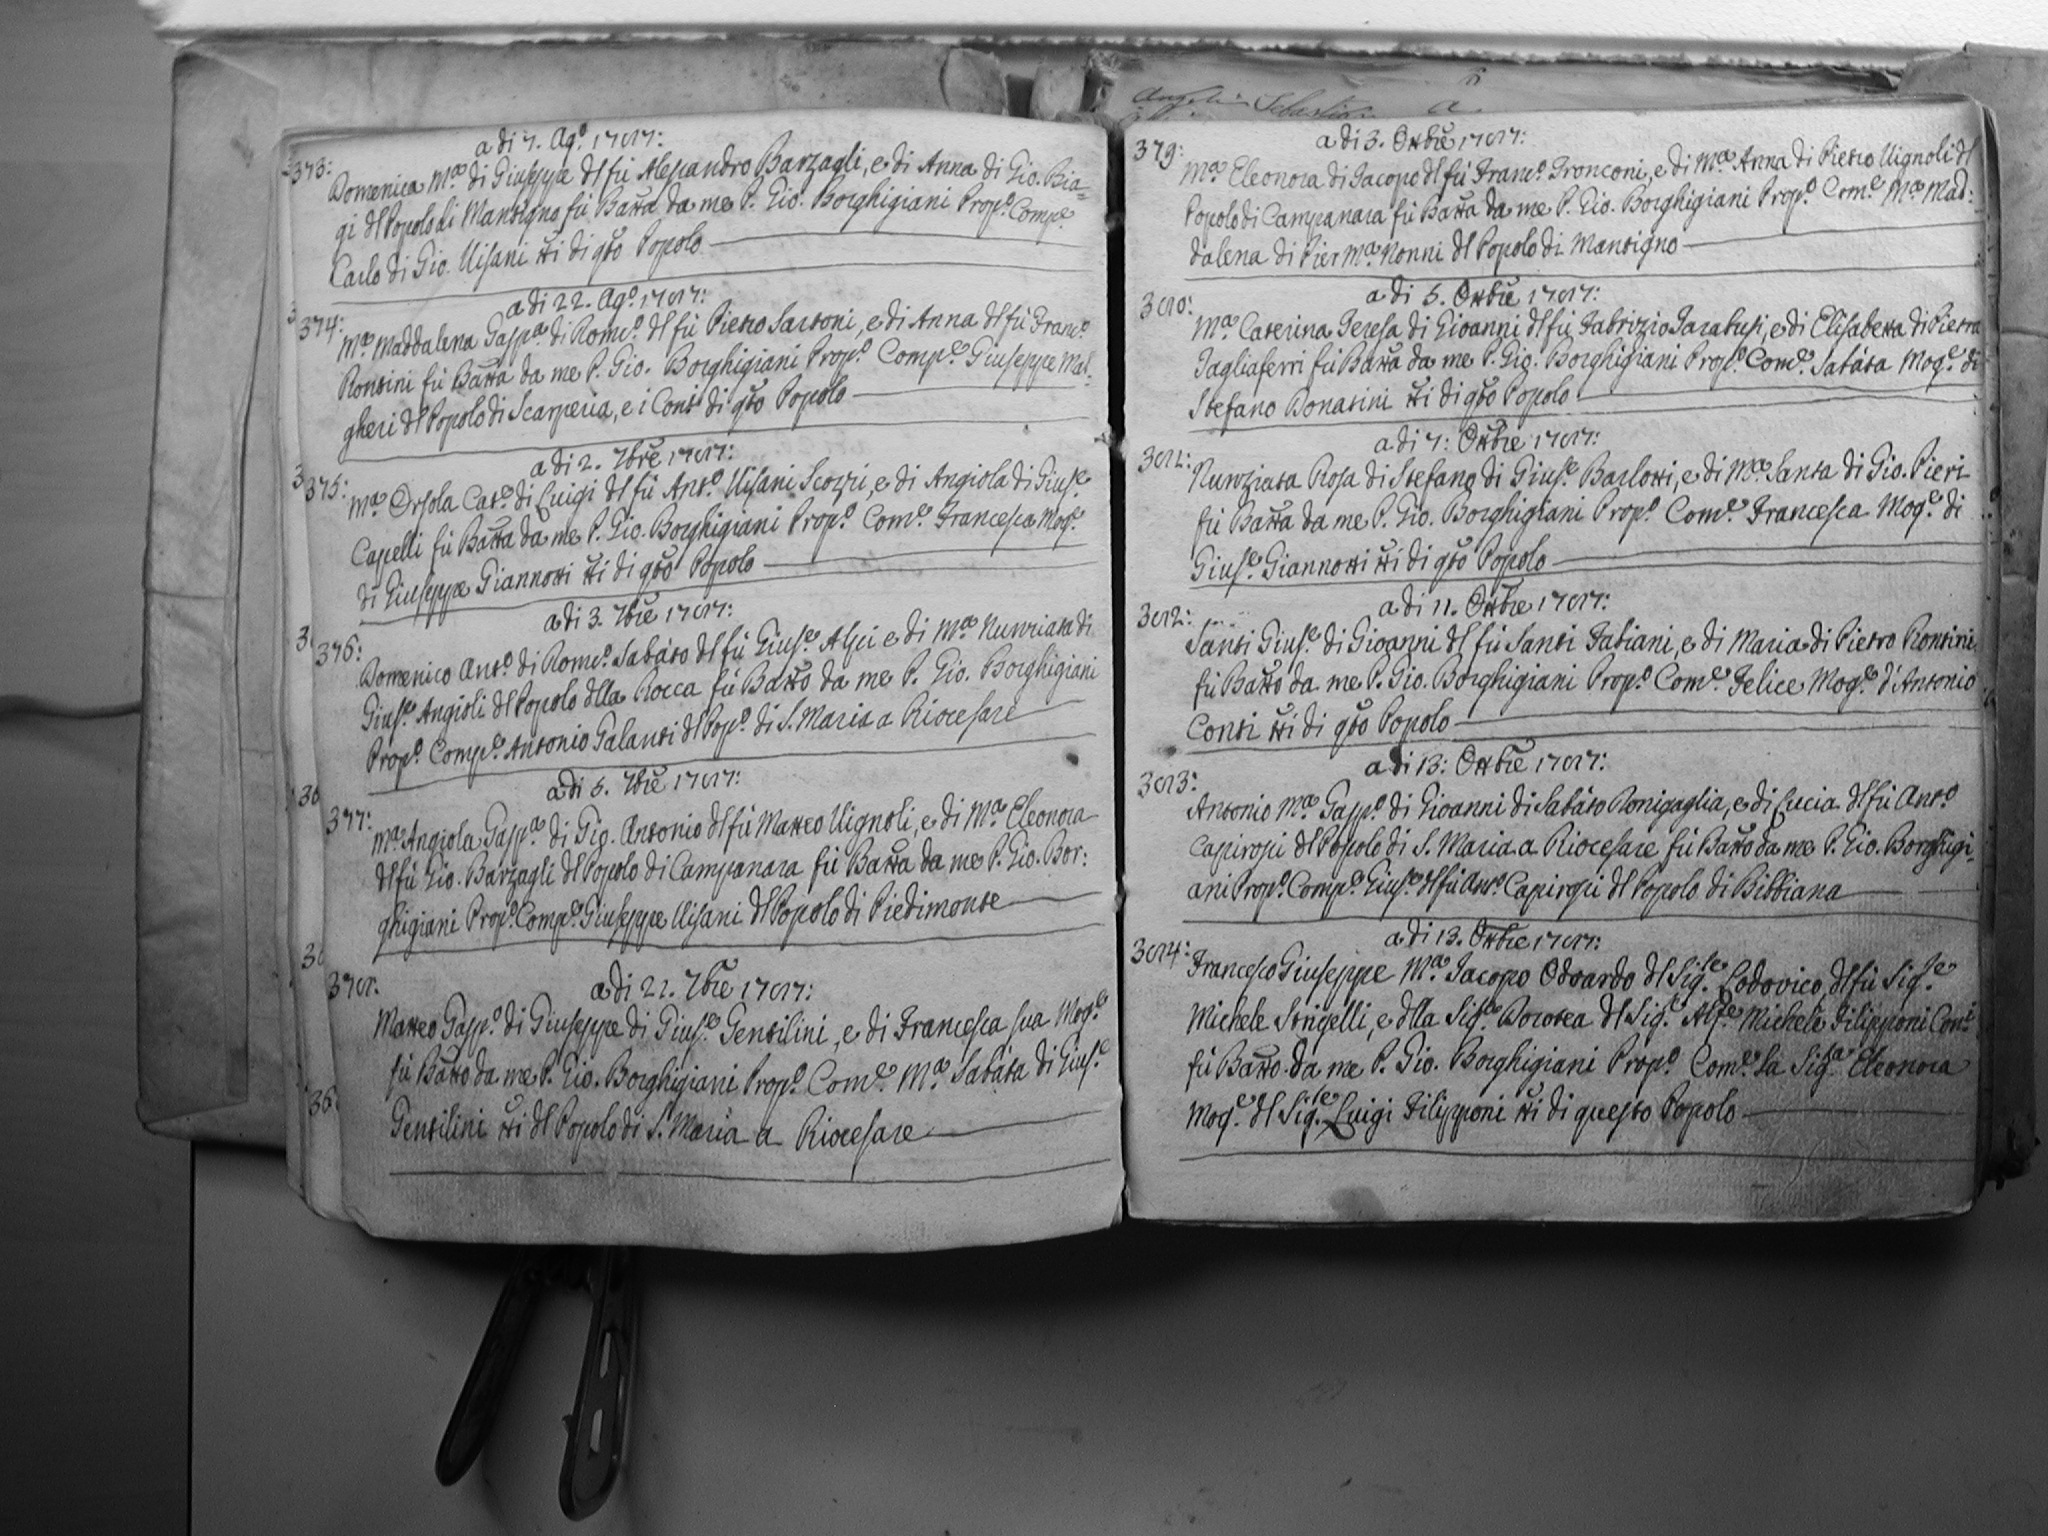 373:
a di 7. Ago. 1787:
Domenica Ma. di Giuseppe dl fù Alessandro Barzagli, e di Anna di Gio. Bia-
gi dl Popolo di Mantigno fù Batta da me P. Gio. Borghigiani Propo. Compe.
Carlo di Gio. Visani tti di qto Popolo
374:
a di 22. Ago. 1787:
Ma. Maddalena Gaspa. di Romo. dl fù Pietro Sartoni, e di Anna dl fù Franco.
Rontini fù Batta da me P. Gio. Borghigiani Propo. Compe. Giuseppe Mal-
gheri dl Popolo di Scarperia, e i Conti di qto Popolo
375:
a di 2. 7bre 1787:
Ma. Orsola Cata. di Luigi dl fù Anto. Visani Scozzi, e di Angiola di Giuse.
Capelli fù Batta da me P. Gio. Borghigiani Propo. Come. Francesca Moge.
di Giuseppe Giannotti tti di qto Popolo
376:
a di 3. 7bre 1787:
Domenico Anto. di Romo. Sabàto dl fù Giuse. Alpi e di Ma. Nunziata di
Giuse. Angioli dl Popolo dlla Rocca fù Batto da me P. Gio. Borghigiani
Propo. Compe. Antonio Galanti dl Popo. di S. Maria a Riocesare
377:
a di 5. 7bre 1787:
Ma. Angiola Gaspa. di Gio. Antonio dl fù Matteo Vignoli, e di Ma. Eleonora
dl fù Gio. Barzagli dl Popolo di Campanara fù Batta da me P. Gio. Bor:
ghigiani Propo. Compe. Giuseppe Visani dl Popolo di Piedimonte
378:
a di 21. 7bre 1787:
Matteo Gaspo. di Giuseppe di Giuse. Gentilini, e di Francesca sua Moge.
fù Batto da me P. Gio. Borghigiani Propo. Come. Ma. Sabàta di Giuse.
Gentilini tti dl Popolo di S. Maria a Riocesare
379:
a di 3. Ottbre 1787:
Ma. Eleonora di Jacopo dl fù Franco. Fronconi, e di Ma. Anna di Pietro Vignoli dl
Popolo di Campanara fù Batta da me P. Gio. Borghigiani Propo. Come. Ma. Mad:
dalena di Pier Ma. Nonni dl Popolo di Mantigno
380:
a di 5. Ottbre 1787:
Ma. Caterina Teresa di Gioanni dl fù Fabrizio Farabusi, e di Elisabetta di Pietro
Tagliaferri fù Batta da me P. Gio. Borghigiani Propo. Come. Sabàta Moge. di
Stefano Donatini tti di qto Popolo
381:
a di 7: Ottbre 1787:
Nunziata Rosa di Stefano di Giuse. Barlotti, e di Ma. Santa di Gio. Pieri
fù Batta da me P. Gio. Borghigiani Propo. Come. Francesca Moge. di
Giuse. Giannotti tti di qto Popolo
382:
a di 11. Ottbre 1787:
Santi Giuse. di Gioanni dl fù Santi Fabiani, e di Maria di Pietro Rontini
fù Batto da me P. Gio. Borghigiani Propo. Come. Felice Moge. d'Antonio
Conti tti di qto Popolo
383:
a di 13: Ottbre 1787:
Antonio Ma. Gaspo. di Gioanni di Sabàto Ronigaglia, e di Lucia dl fù Anto.
Capiropi dl Popolo di S. Maria a Riocesare fù Batto da me P. Gio. Borghigi-
ani Propo. Compe. Giuse. dl fù Anto. Capiropi dl Popolo di Bibbiana
384:
a di 13. Ottbre 1787:
Francesco Giuseppe Ma. Jacopo Odoardo dl Sige. Lodovico dl fù Sige.
Michele Strigelli, e dlla Siga. Dorotea dl Sige. Alfe. Michele Filipponi Conti
fù Batto da me P. Gio. Borghigiani Propo. Come. La Siga. Eleonora
Moge. dl Sige. Luigi Filipponi tti di questo Popolo